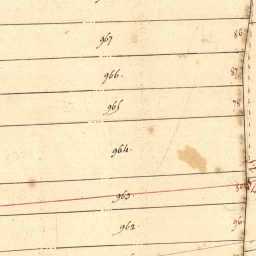 967
86
966.
87
965
78
964.
963.
962.
96